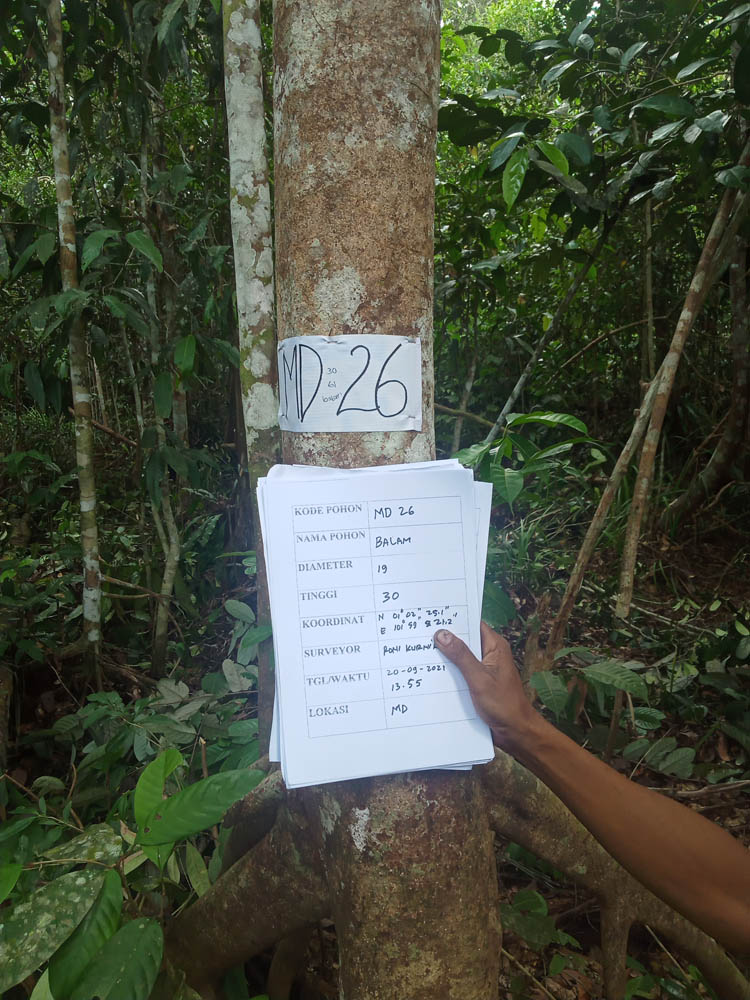 MD 26
30
61
KODE POHON MD 26
NAMA POHON BALAM
DIAMETER 19
TINGGI 30
KOORDINAT N 01° 02" 25.1"
E 101° 59 21.2
SURVEYOR RONI
TGL/WAKTU 20-09-2021
13.55
LOKASI MD